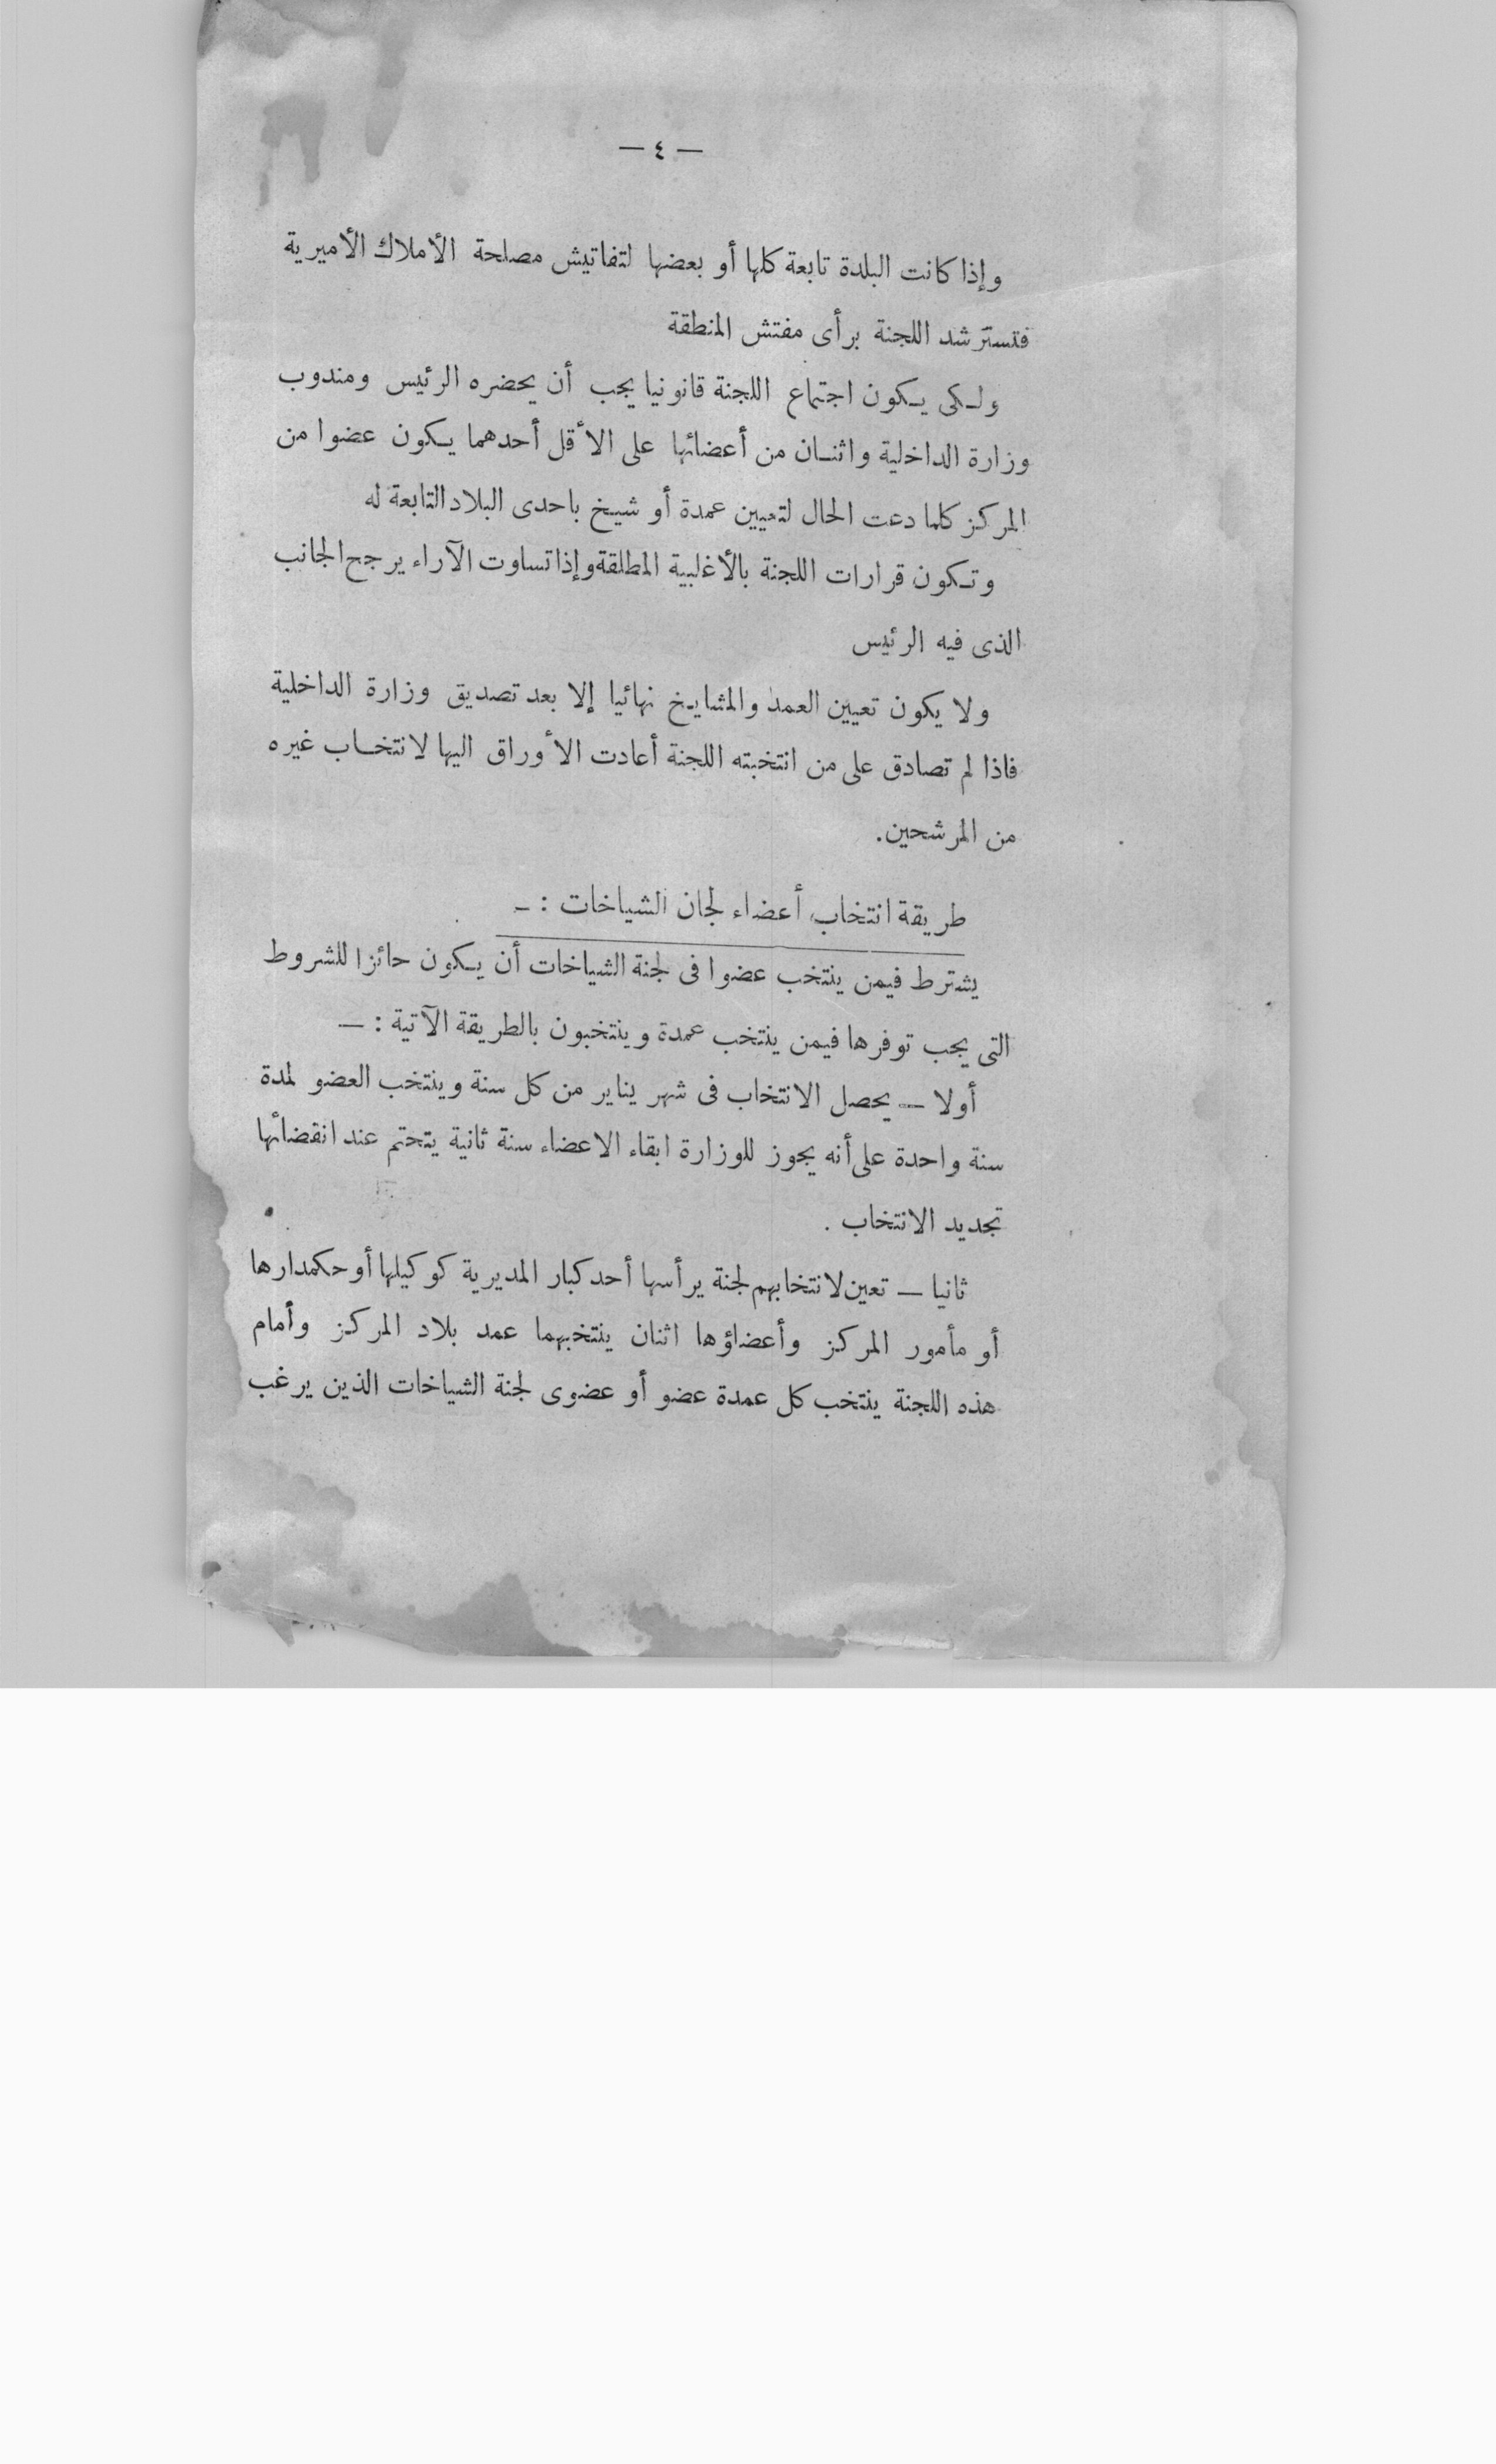 — ٤ —
وإذا كانت البلدة تابعة كلها أو بعضها لتفاتيش مصلحة الأملاك الأميرية
فتسترشد اللجنة برأى مفتش المنطقة
ولكى يكون اجتماع اللجنة قانونيا يجب أن يحضره الرئيس ومندوب
وزارة الداخلية واثنان من أعضائها على الأقل أحدهما يكون عضوا من
المركز كلما دعت الحال لتعيين عمدة أو شيخ باحدى البلاد التابعة له
وتكون قرارات اللجنة بالأغلبية المطلقة وإذا تساوت الآراء يرجح الجانب
الذى فيه الرئيس
ولا يكون تعيين العمد والمشايخ نهائيا إلا بعد تصديق وزارة الداخلية
فاذا لم تصادق على من انتخبته اللجنة أعادت الأوراق اليها لانتخاب غيره
من المرشحين.
طريقة انتخاب أعضاء لجان الشياخات : -
يشترط فيمن ينتخب عضوا فى لجنة الشياخات أن يكون حائزا للشروط
التى يجب توفرها فيمن ينتخب عمدة وينتخبون بالطريقة الآتية : —
أولا — يحصل الانتخاب فى شهر يناير من كل سنة وينتخب العضو لمدة
سنة واحدة على أنه يجوز للوزارة ابقاء الاعضاء سنة ثانية يتحتم عند انقضائها
تجديد الانتخاب .
ثانيا — تعين لانتخابهم لجنة يرأسها أحد كبار المديرية كوكيلها أو حكمدارها
أو مأمور المركز وأعضاؤها اثنان ينتخبهما عمد بلاد المركز وأمام
هذه اللجنة ينتخب كل عمدة عضو أو عضوى لجنة الشياخات الذين يرغب